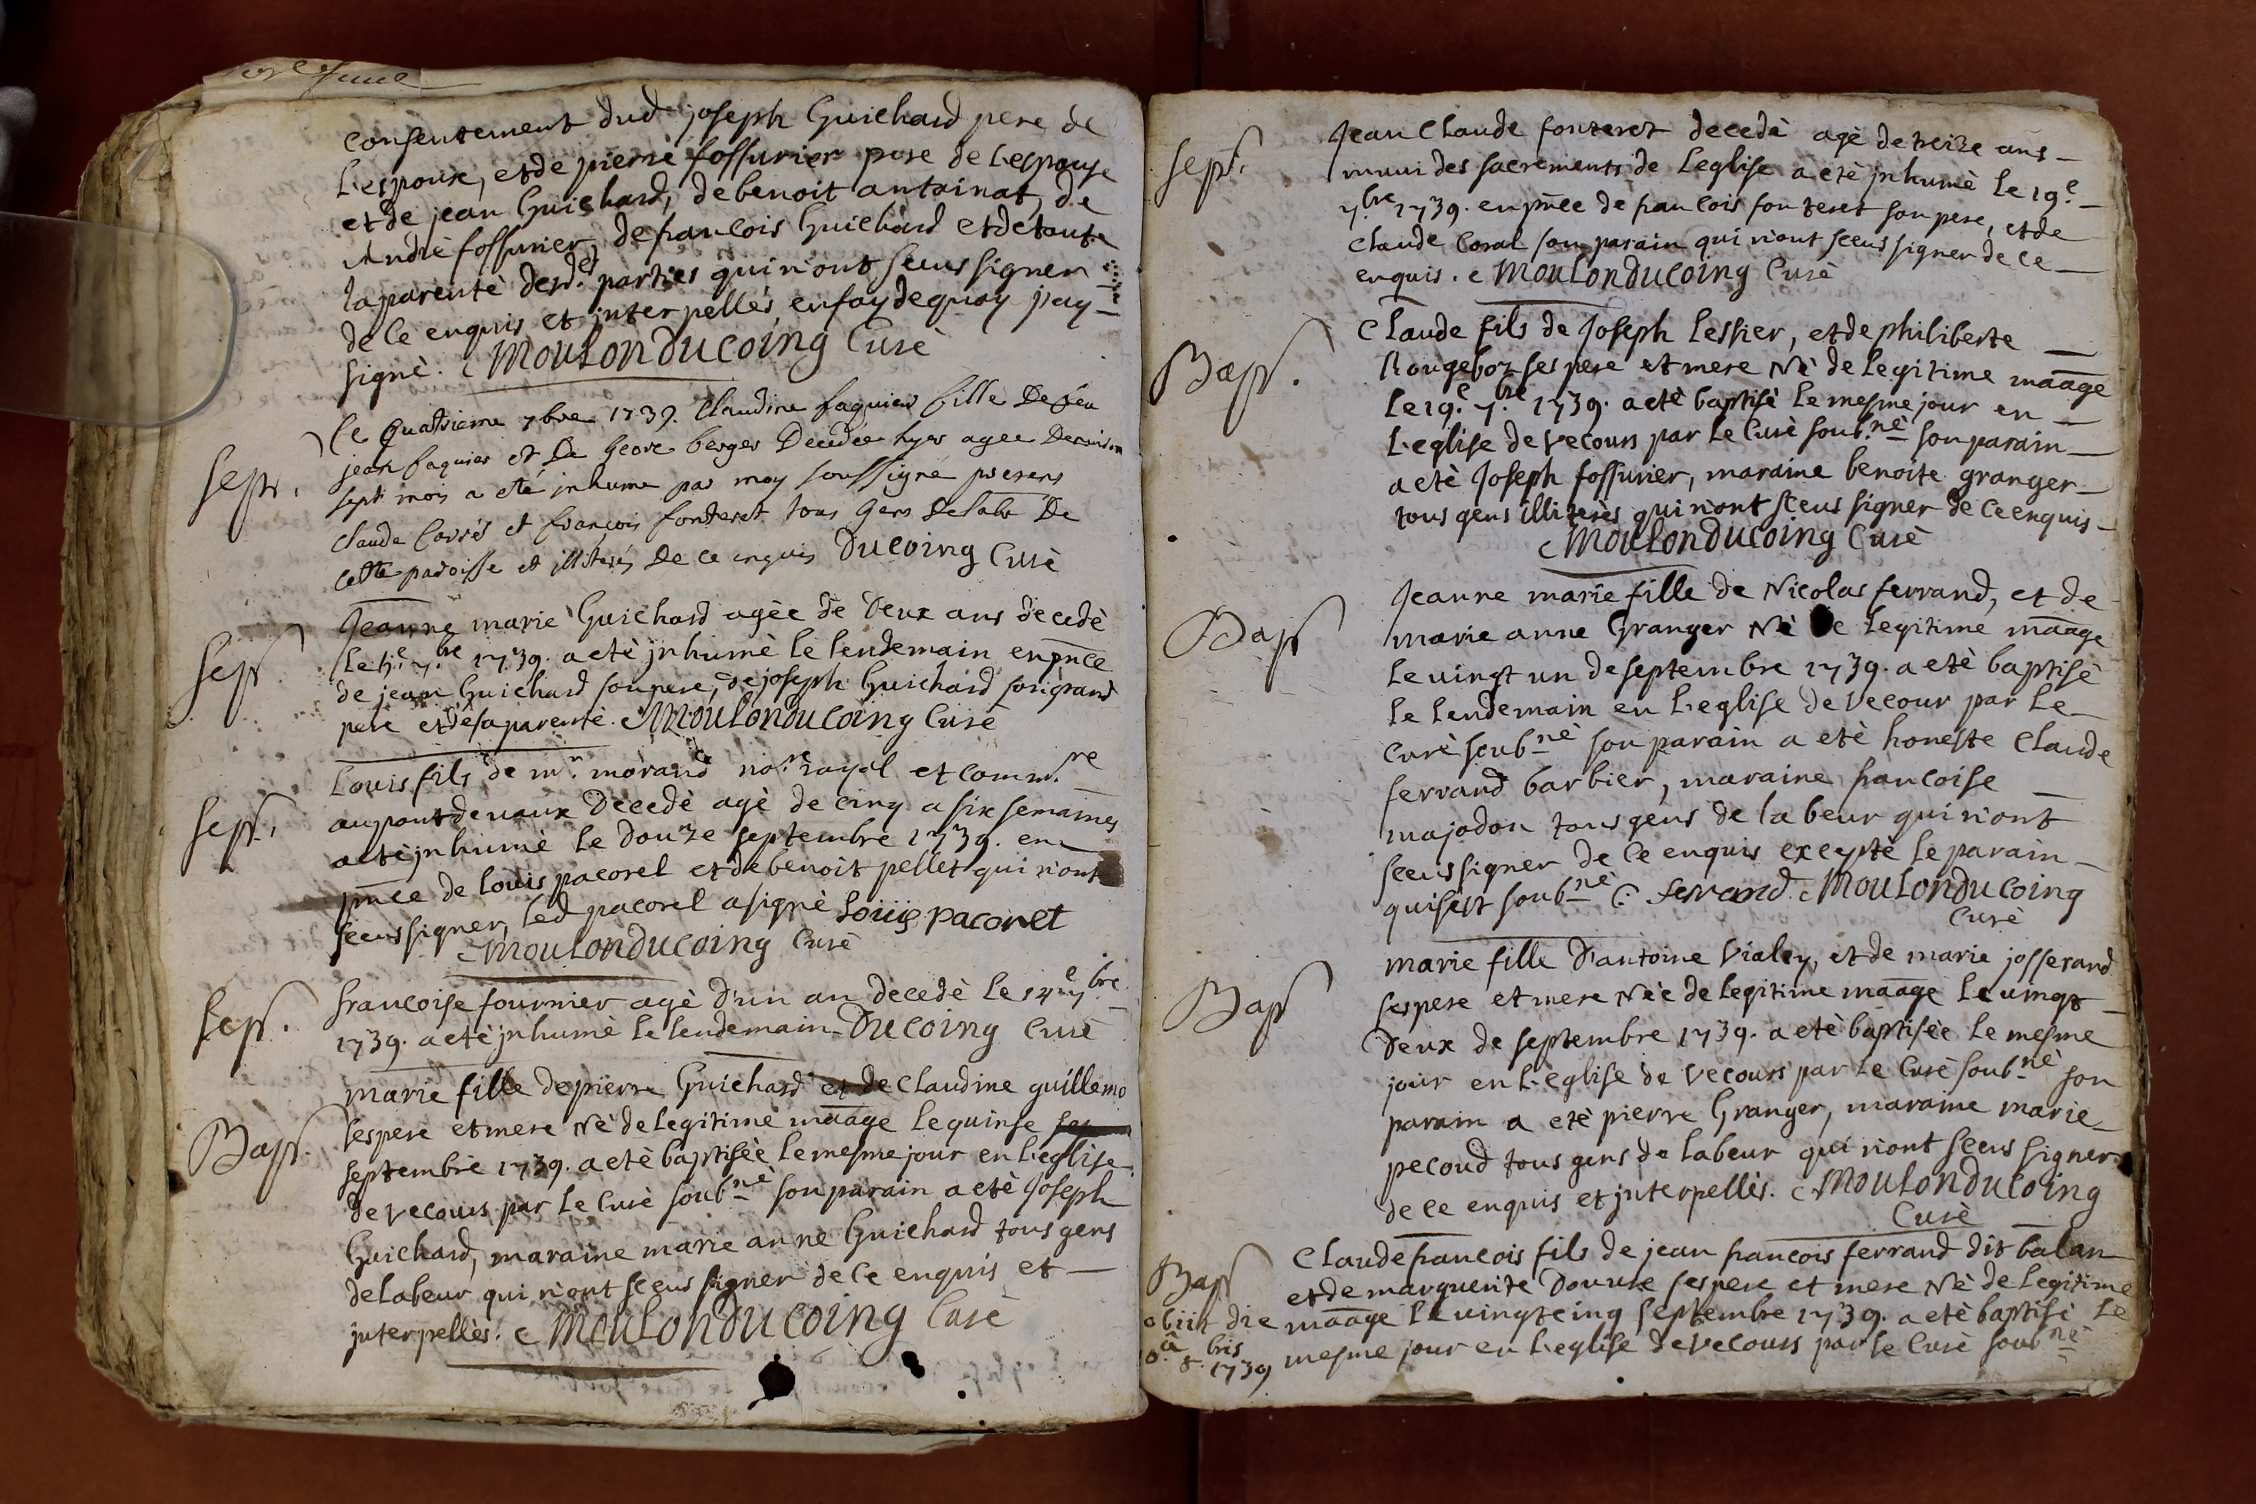 consentement dud joseph Guichard pere de
L'espoux, et de pierre fossurier pere de L'espouse
et de jean Guichard, de benoit antoinat, de
André fossurier, de francois Guichard et de toute
la parenté desd. parties qui n'ont sceus signer
de ce enquis et interpellés, en foy de quoy j'ay
signé. Moulonducoing Curé
sep.
Le quatrieme 7bre 1739. Claudine faguier fille De feu
jean faguier et De berger Decedée hyer agee
sept mois a eté inhume par moy soussigné presens
Claude Carré et françois fonteret tous gens Delabr De
cette paroisse et illiterés De ce enquis Ducoing Curé
Sep
Jeanne marie Guichard agée de Deux ans decedé
Le 7.bre 1739. a eté jnhumé le lendemain en pnce
de jean Guichard son pere, de joseph Guichard son grand
pere et de sa parenté. Moulonducoing Curé
sep.
Louis fils de mr. morand nore. royal et commre
au pont de vaux Decedé agé de cinq a six semaines
a eté jnhumé le Douze septembre 1739. en
pnce de louis pacorel et de benoit pellet qui n'ont
sceus signer, led pacorel a signé Louis pacoret
Moulonducoing Curé
sep.
francoise fournier agé d'un an decedé le 14e 7bre
1739. a eté jnhumé le lendemain Ducoing Curé
Bap.
marie fille de pierre Guichard et de Claudine guillemo
ses pere et mere Né de legitime maage le quinse
septembre 1739. a eté baptiséé le mesme jour en L'eglise
de vecours par le Curé soubné son parain a eté Joseph
Guichard, maraine marie anne Guichard tous gens
de labeur qui n'ont sceus signer de ce enquis et
jnterpellés. Moulonducoing Curé
sep.
Jean Claude fonteret decedé agé de treize ans
muni des sacrements de L'eglise a eté jnhumé le 19e.
7.bre 1739. en pnce de francois fonteret son pere, et de
Claude Coral son parain qui n'ont sceus signer de ce
enquis. Moulonducoing Curé
Bap.
Claude fils de Joseph Lessier, et de philiberte
Rougeboz ses pere et mere Né de legitime maage
le 19e. 7.bre 1739. a eté baptisé le mesme jour en
L'eglise de vecours par le Curé soub.né son parain
a eté Joseph fossurier, maraine benoite granger
tous gens illiterés qui n'ont sceus signer de ce enquis
Moulonducoing Curé
Bap
Jeanne marie fille de Nicolas ferrand, et de
marie anne Granger Né de legitime maage
le vingt un de septembre 1739. a eté baptisé
le lendemain en L'eglise de vecour par le
Curé soubné son parain a eté honeste Claude
ferrand barbier, maraine francoise
majodon tous gens de labeur qui n'ont
sceus signer de ce enquis excepté le parain
qui s'est soubné C. ferrand. Moulonducoing
Curé
Bap
marie fille d'antoine Vialey, et de marie josserand
ses pere et mere Née de legitime maage le vingt
Deux de septembre 1739. a eté baptisée le mesme
jour en L'eglise de vecours par le Curé soubné son
parain a eté pierre Granger, maraine marie
pecoud tous gens de labeur qui n'ont sceus signer
de ce enquis et jnterpellés. Moulonducoing
Curé
Bap
obiit die
8 bris
1739
Claude francois fils de jean francois ferrand dit balan
et de marguerite Douvre ses pere et mere Né de legitime
maage le vingt cinq septembre 1739. a eté baptisé le
mesme jour en L'eglise de vecours par le Curé soubné